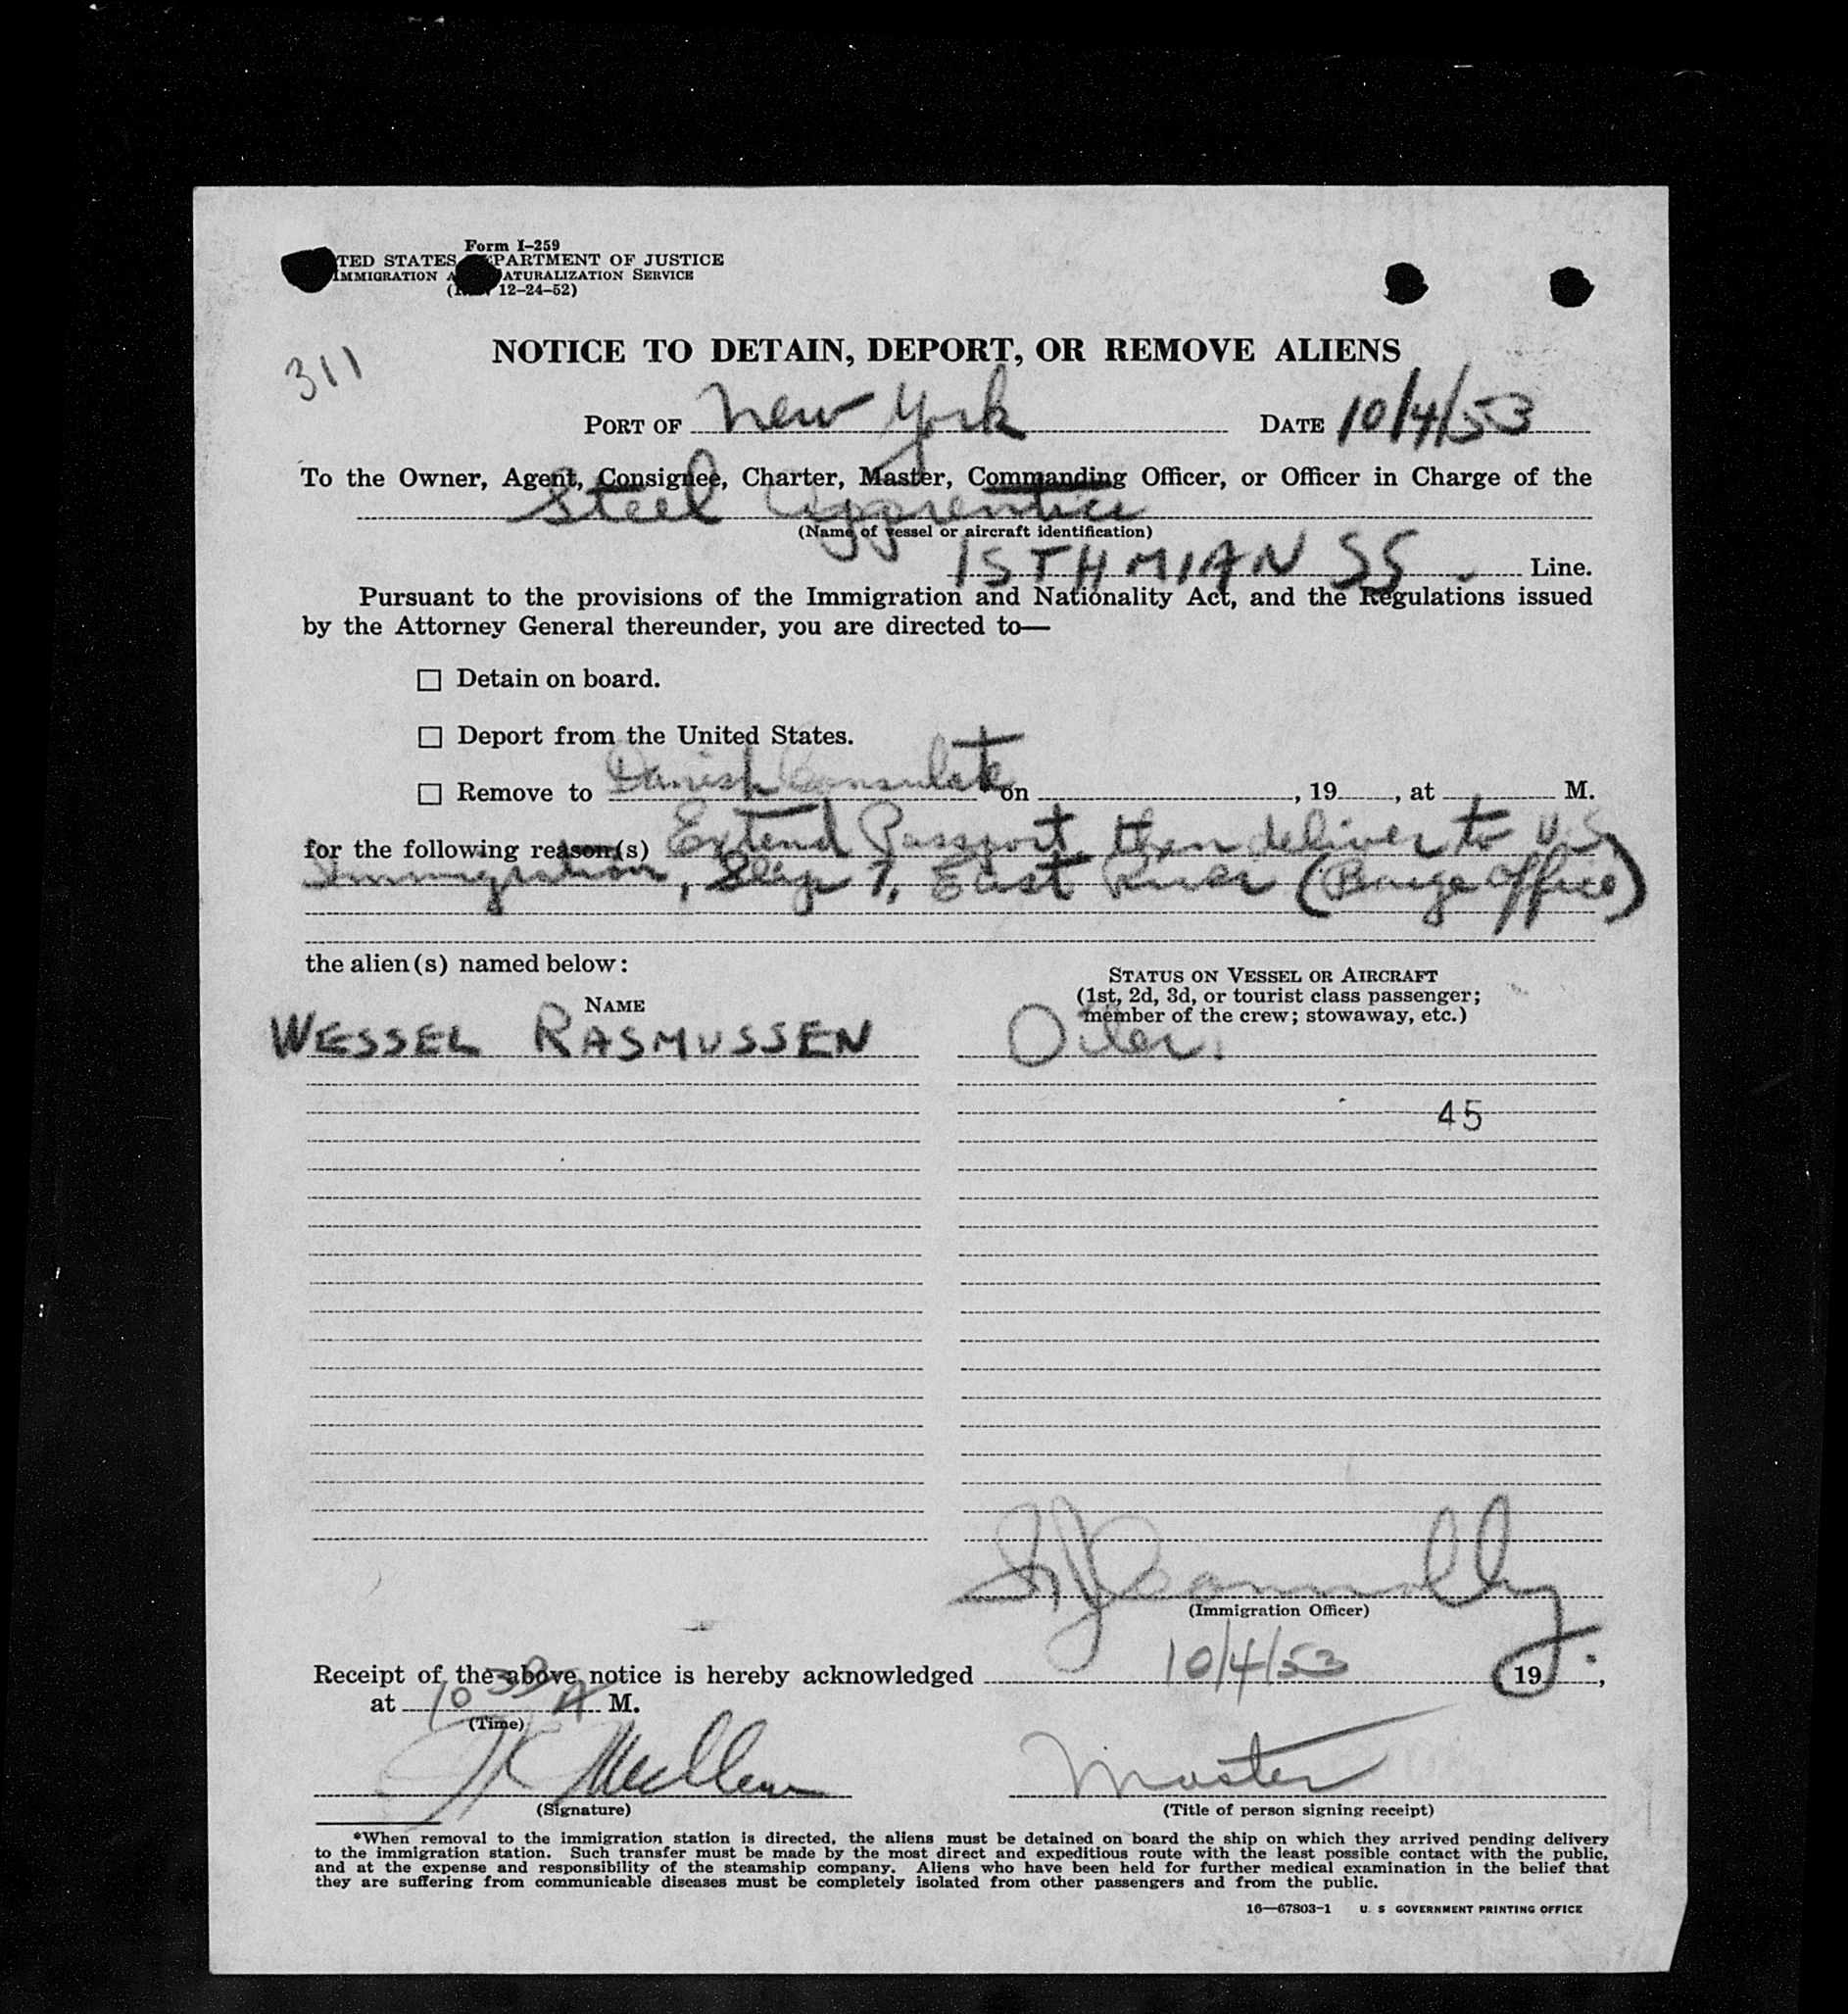 Form I-259
TED STATES PARTMENT OF JUSTICE
IMMIGRATION A ATURALIZATION SERVICE
( 12-24-52)
311
NOTICE TO DETAIN, DEPORT, OR REMOVE ALIENS
PORT OF New York DATE 10/4/53
To the Owner, Agent, Consignee, Charter, Master, Commanding Officer, or Officer in Charge of the
Steel Apprentice
(Name of vessel or aircraft identification)
ISTHMIAN SS. Line.
Pursuant to the provisions of the Immigration and Nationality Act, and the Regulations issued
by the Attorney General thereunder, you are directed to—
☐ Detain on board.
☐ Deport from the United States.
☐ Remove to Danish Consulate on , 19 , at M.
for the following reason(s) Extend Passport then deliver to U.S.
Immigration, Slip 7, East River (Barge Office)
the alien(s) named below:
NAME
STATUS ON VESSEL OR AIRCRAFT
(1st, 2d, 3d, or tourist class passenger;
member of the crew; stowaway, etc.)
WESSEL RASMUSSEN Oiler.
45
Connolly
(Immigration Officer)
Receipt of the above notice is hereby acknowledged 10/4/53 19 ,
at 10 30 A M.
(Time)
Master
(Signature)
(Title of person signing receipt)
*When removal to the immigration station is directed, the aliens must be detained on board the ship on which they arrived pending delivery
to the immigration station. Such transfer must be made by the most direct and expeditious route with the least possible contact with the public,
and at the expense and responsibility of the steamship company. Aliens who have been held for further medical examination in the belief that
they are suffering from communicable diseases must be completely isolated from other passengers and from the public.
16—67803-1 U. S GOVERNMENT PRINTING OFFICE